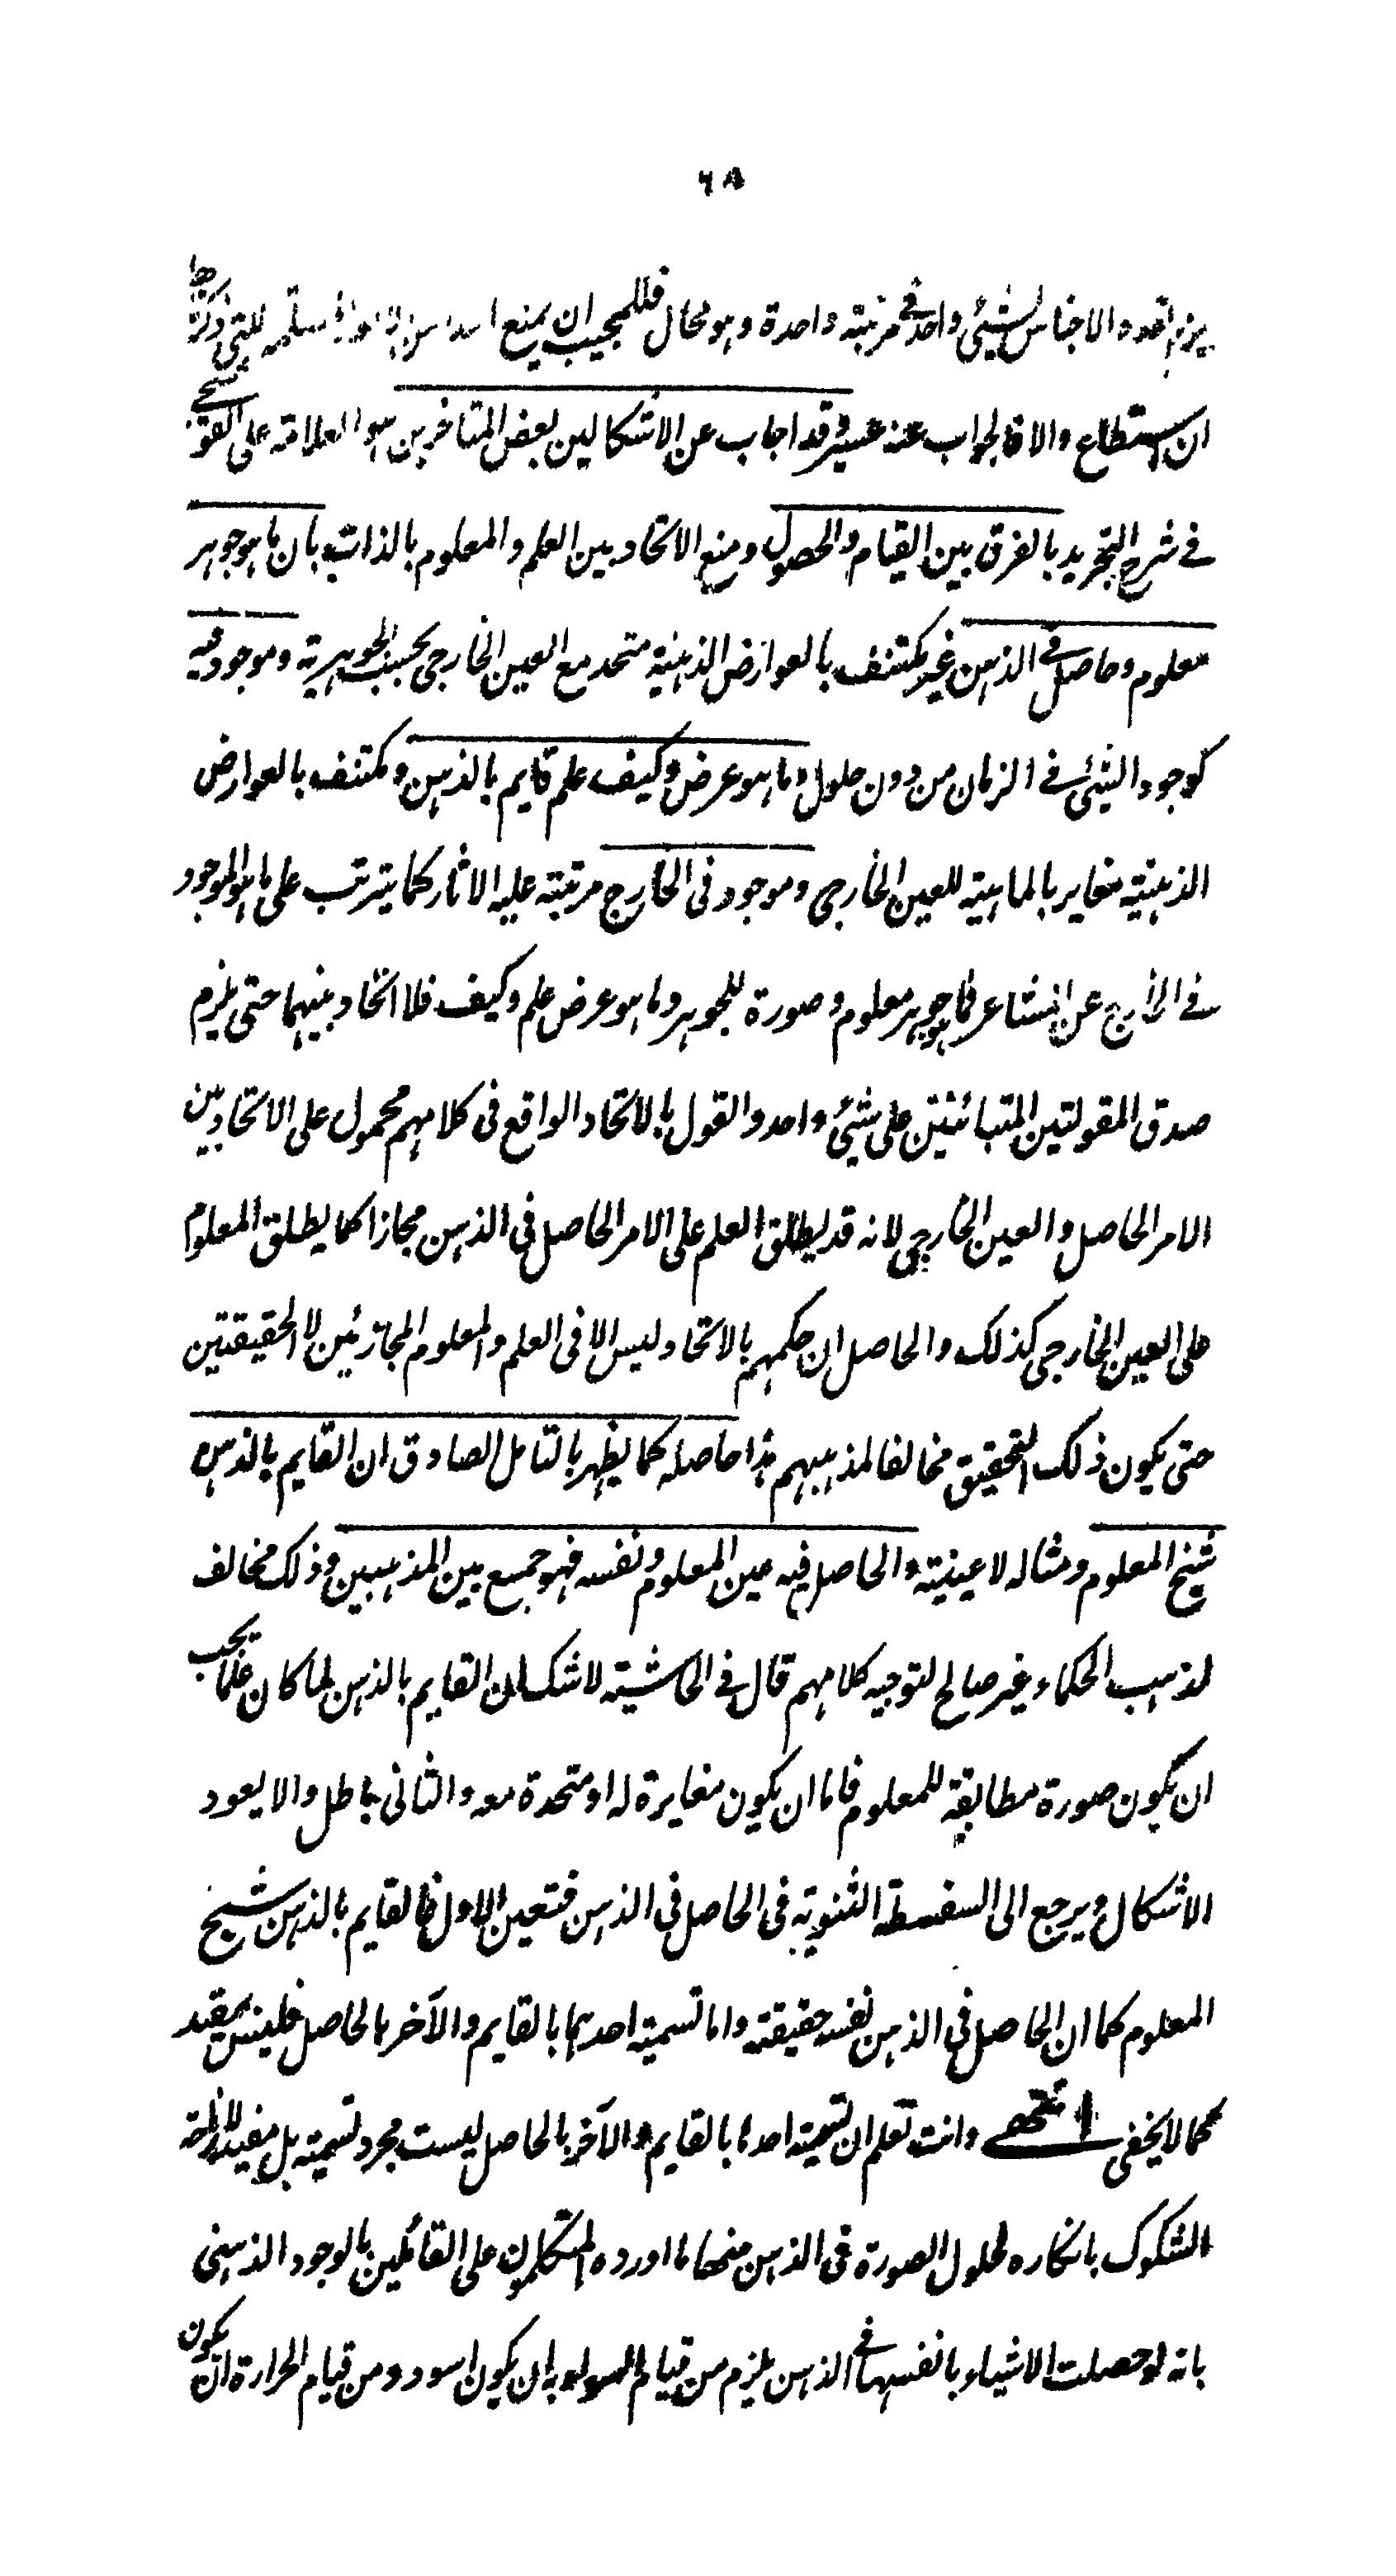 ٦٨
الاجناس لشيئ واحد في مرتبته واحدة وهو محال فللمجيب ان يمنع للتي ذكرها
ان استطاع والا فالجواب عنه عسير وقد اجاب عن الاشكالين بعض المتاخرين هو العلامة على القوشجي
في شرح التجريد بالفرق بين القيام والحصول ومنع الاتحاد بين العلم والمعلوم بالذات بان ما هو جوهر
معلوم وحاصل في الذهن غير مكتنف بالعوارض الذهنية متحد مع العين الخارجي بحسب الجوهرية وموجود فيه
كوجود الشئ في الزمان من دون حلول وما هو عرض وكيف علم قايم بالذهن ومكتنف بالعوارض
الذهنية مغاير بالماهية للعين الخارجي وموجود في الخارج مرتبته عليه الاثار كما يترتب على ما هو الموجود
في الخارج عن المشاعر فما هو جوهر معلوم وصورة للجوهر وما هو عرض علم وكيف فلا اتحاد بينهما حتى يلزم
صدق المقولتين المتبائنتين على شيئ واحد والقول بالاتحاد الواقع في كلامهم محمول على الاتحاد بين
الامر الحاصل والعين الخارجي لانه قد يطلق العلم على الامر الحاصل في الذهن مجازا كما يطلق المعلوم
على العين الخارجي كذلك والحاصل ان حكمهم بالاتحاد ليس الا في العلم والمعلوم المجازئين لا الحقيقتين
حتى يكون ذلك التحقيق مخالفا لمذهبهم هذا حاصله كما يظهر بالتامل الصادق ان القايم بالذهن
شبح المعلوم ومثاله لا عينيته والحاصل فيه عين المعلوم ونفسه فهو جمع بين المذهبين وذلك مخالف
لمذهب الحكماء غير صالح لتوجيه كلامهم قال في الحاشيته لا شك ان القايم بالذهن لما كان علما يجب
ان يكون صورة مطابقة للمعلوم فاما ان يكون مغايرة له او متحدة معه والثاني باطل والا يعود
الاشكال ويرجع الى السفسطة الثنوية في الحاصل في الذهن فتعين الاول فالقايم بالذهن شبح
المعلوم كما ان الحاصل في الذهن نفسه حقيقته واما تسميته احدهما بالقايم والآخر بالحاصل فليس بمفيد
كما لا يخفى انتهى وانت تعلم ان تسميته احدها بالقايم والآخر بالحاصل ليست مجرد تسميته بل مفيد لازاحة
الشكوك بانكاره لحلول الصورة في الذهن منها ما اورده المتكلمون على القائلين بالوجود الذهني
بانه لو حصلت الاشياء بانفسها في الذهن يلزم من قيام السواد به ان يكون اسود ومن قيام الحرارة ان يكون